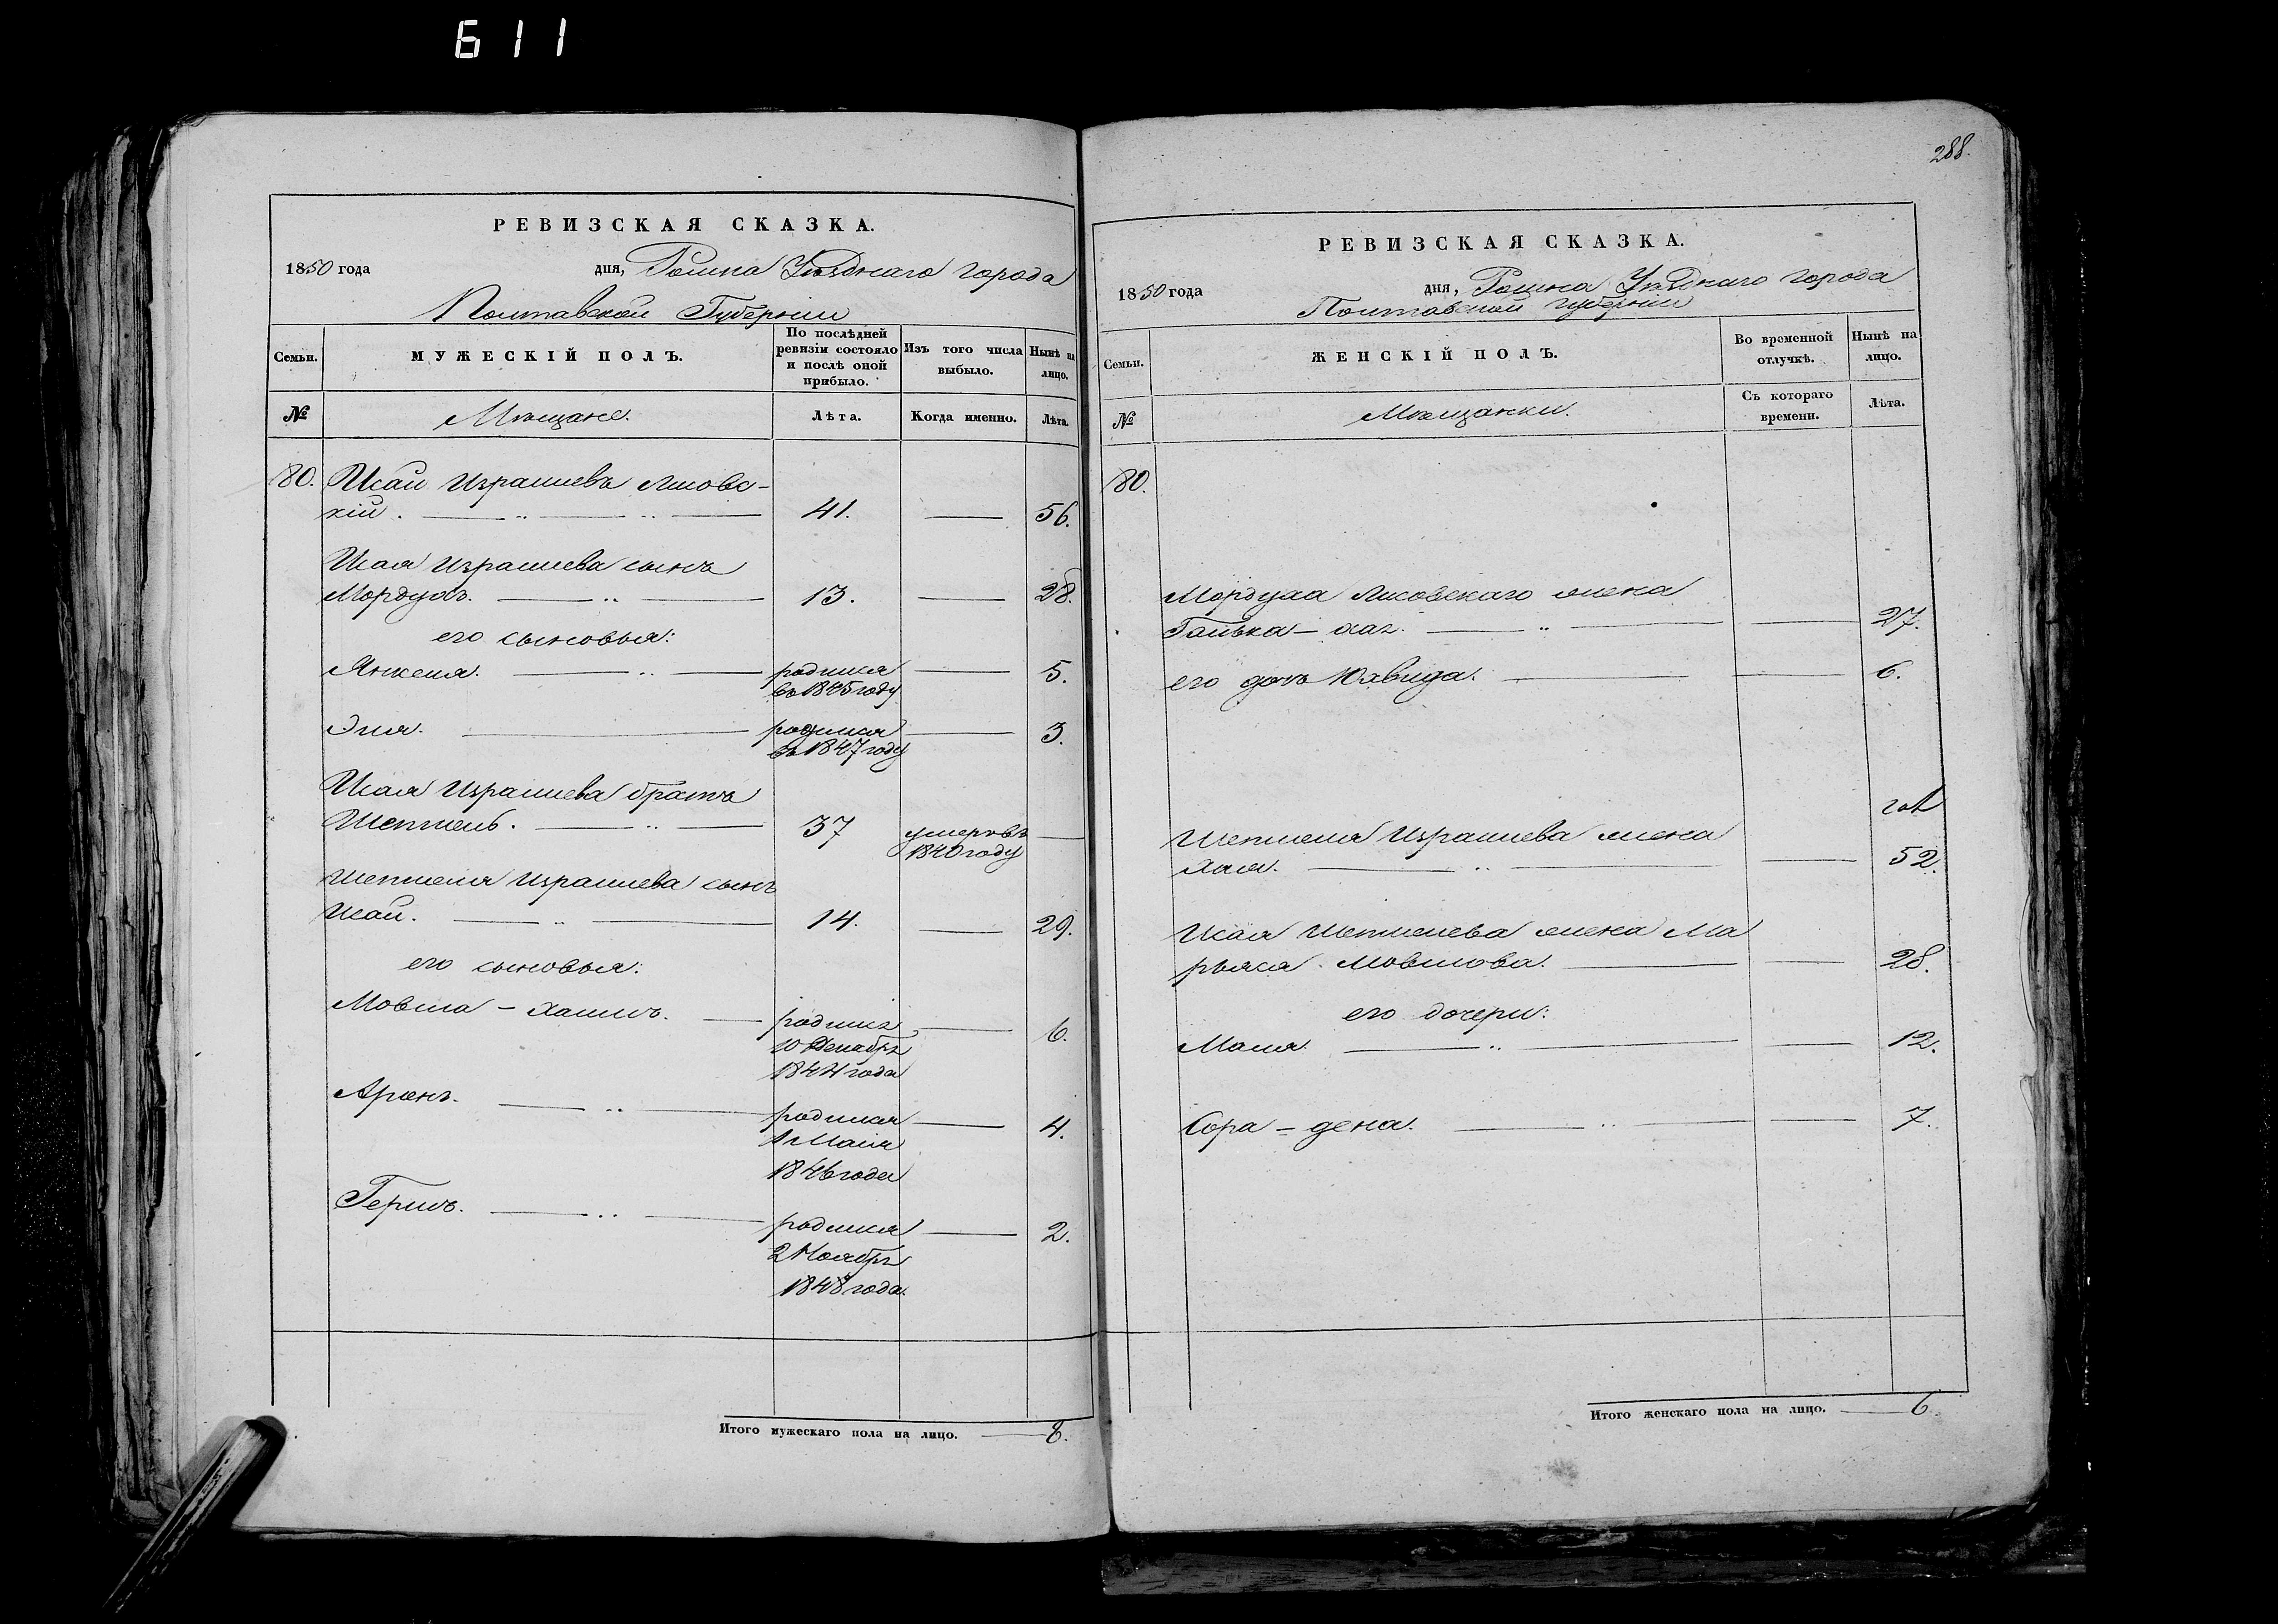 611
288.
РЕВИЗСКАЯ СКАЗКА.
1850 года дня, Ромна Уѣзднаго города
Полтавской Губерніи
Семьи.
МУЖЕСКІЙ ПОЛЪ.
По послѣдней ревизіи состояло и послѣ оной прибыло.
Изъ того числа выбыло.
Нынѣ на лицо.
№
Мѣщане.
Лѣта.
Когда именно.
Лѣта.
80. Исай Израилевъ Лисовс-
кій. 41. 56.
Исая Израилева сынъ
Мордухъ. 13. 28.
его сыновья:
Янкель. родился 5.
въ 1845 году
Эля. родился 3.
въ 1847 году
Исая Израилева братъ
Шепшель. 37 умеръ въ
1840 году
Шепшеля Израилева сынъ
Исай. 14. 29.
его сыновья:
Мовша - Хаимъ. родился 6.
10 Декабря
1844 года
Аронъ. родился 4.
1 Маія
1846 года
Гершъ. родился 2.
2 Ноября
1848 года.
Итого мужескаго пола на лицо. 8.
РЕВИЗСКАЯ СКАЗКА.
1850 года дня, Ромна Уѣзднаго города
Полтавской губерніи
Семьи.
ЖЕНСКІЙ ПОЛЪ.
Во временной отлучкѣ.
Нынѣ на лицо.
№
Мѣщанки.
Съ котораго времени.
Лѣта.
80.
Мордуха Лисовскаго жена
27.
его дочь Юхвида. 6.
Шепшеля Израилева жена
Хая. 52.
Исая Шепшелева жена Ма
рьяся Мовшова. 28.
его дочери:
Маша. 12.
Сора - дена. 7.
Итого женскаго пола на лицо. 6